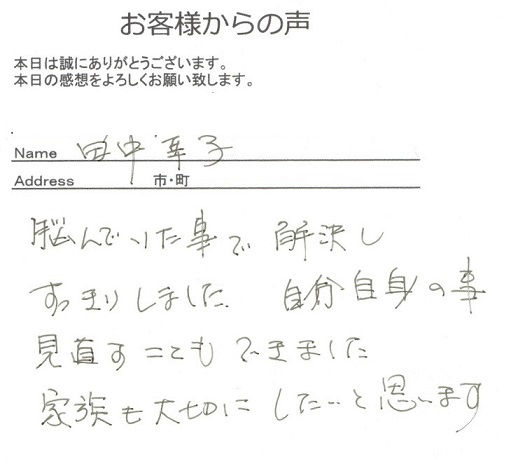 お客様からの声
本日は誠にありがとうございます。
本日の感想をよろしくお願い致します。
Name 田中 幸子
Address 市・町
脳んでいた事で 解決し
すっきりしました 自分自身の事
見直すこともできました
家族も大切にしたいと思います